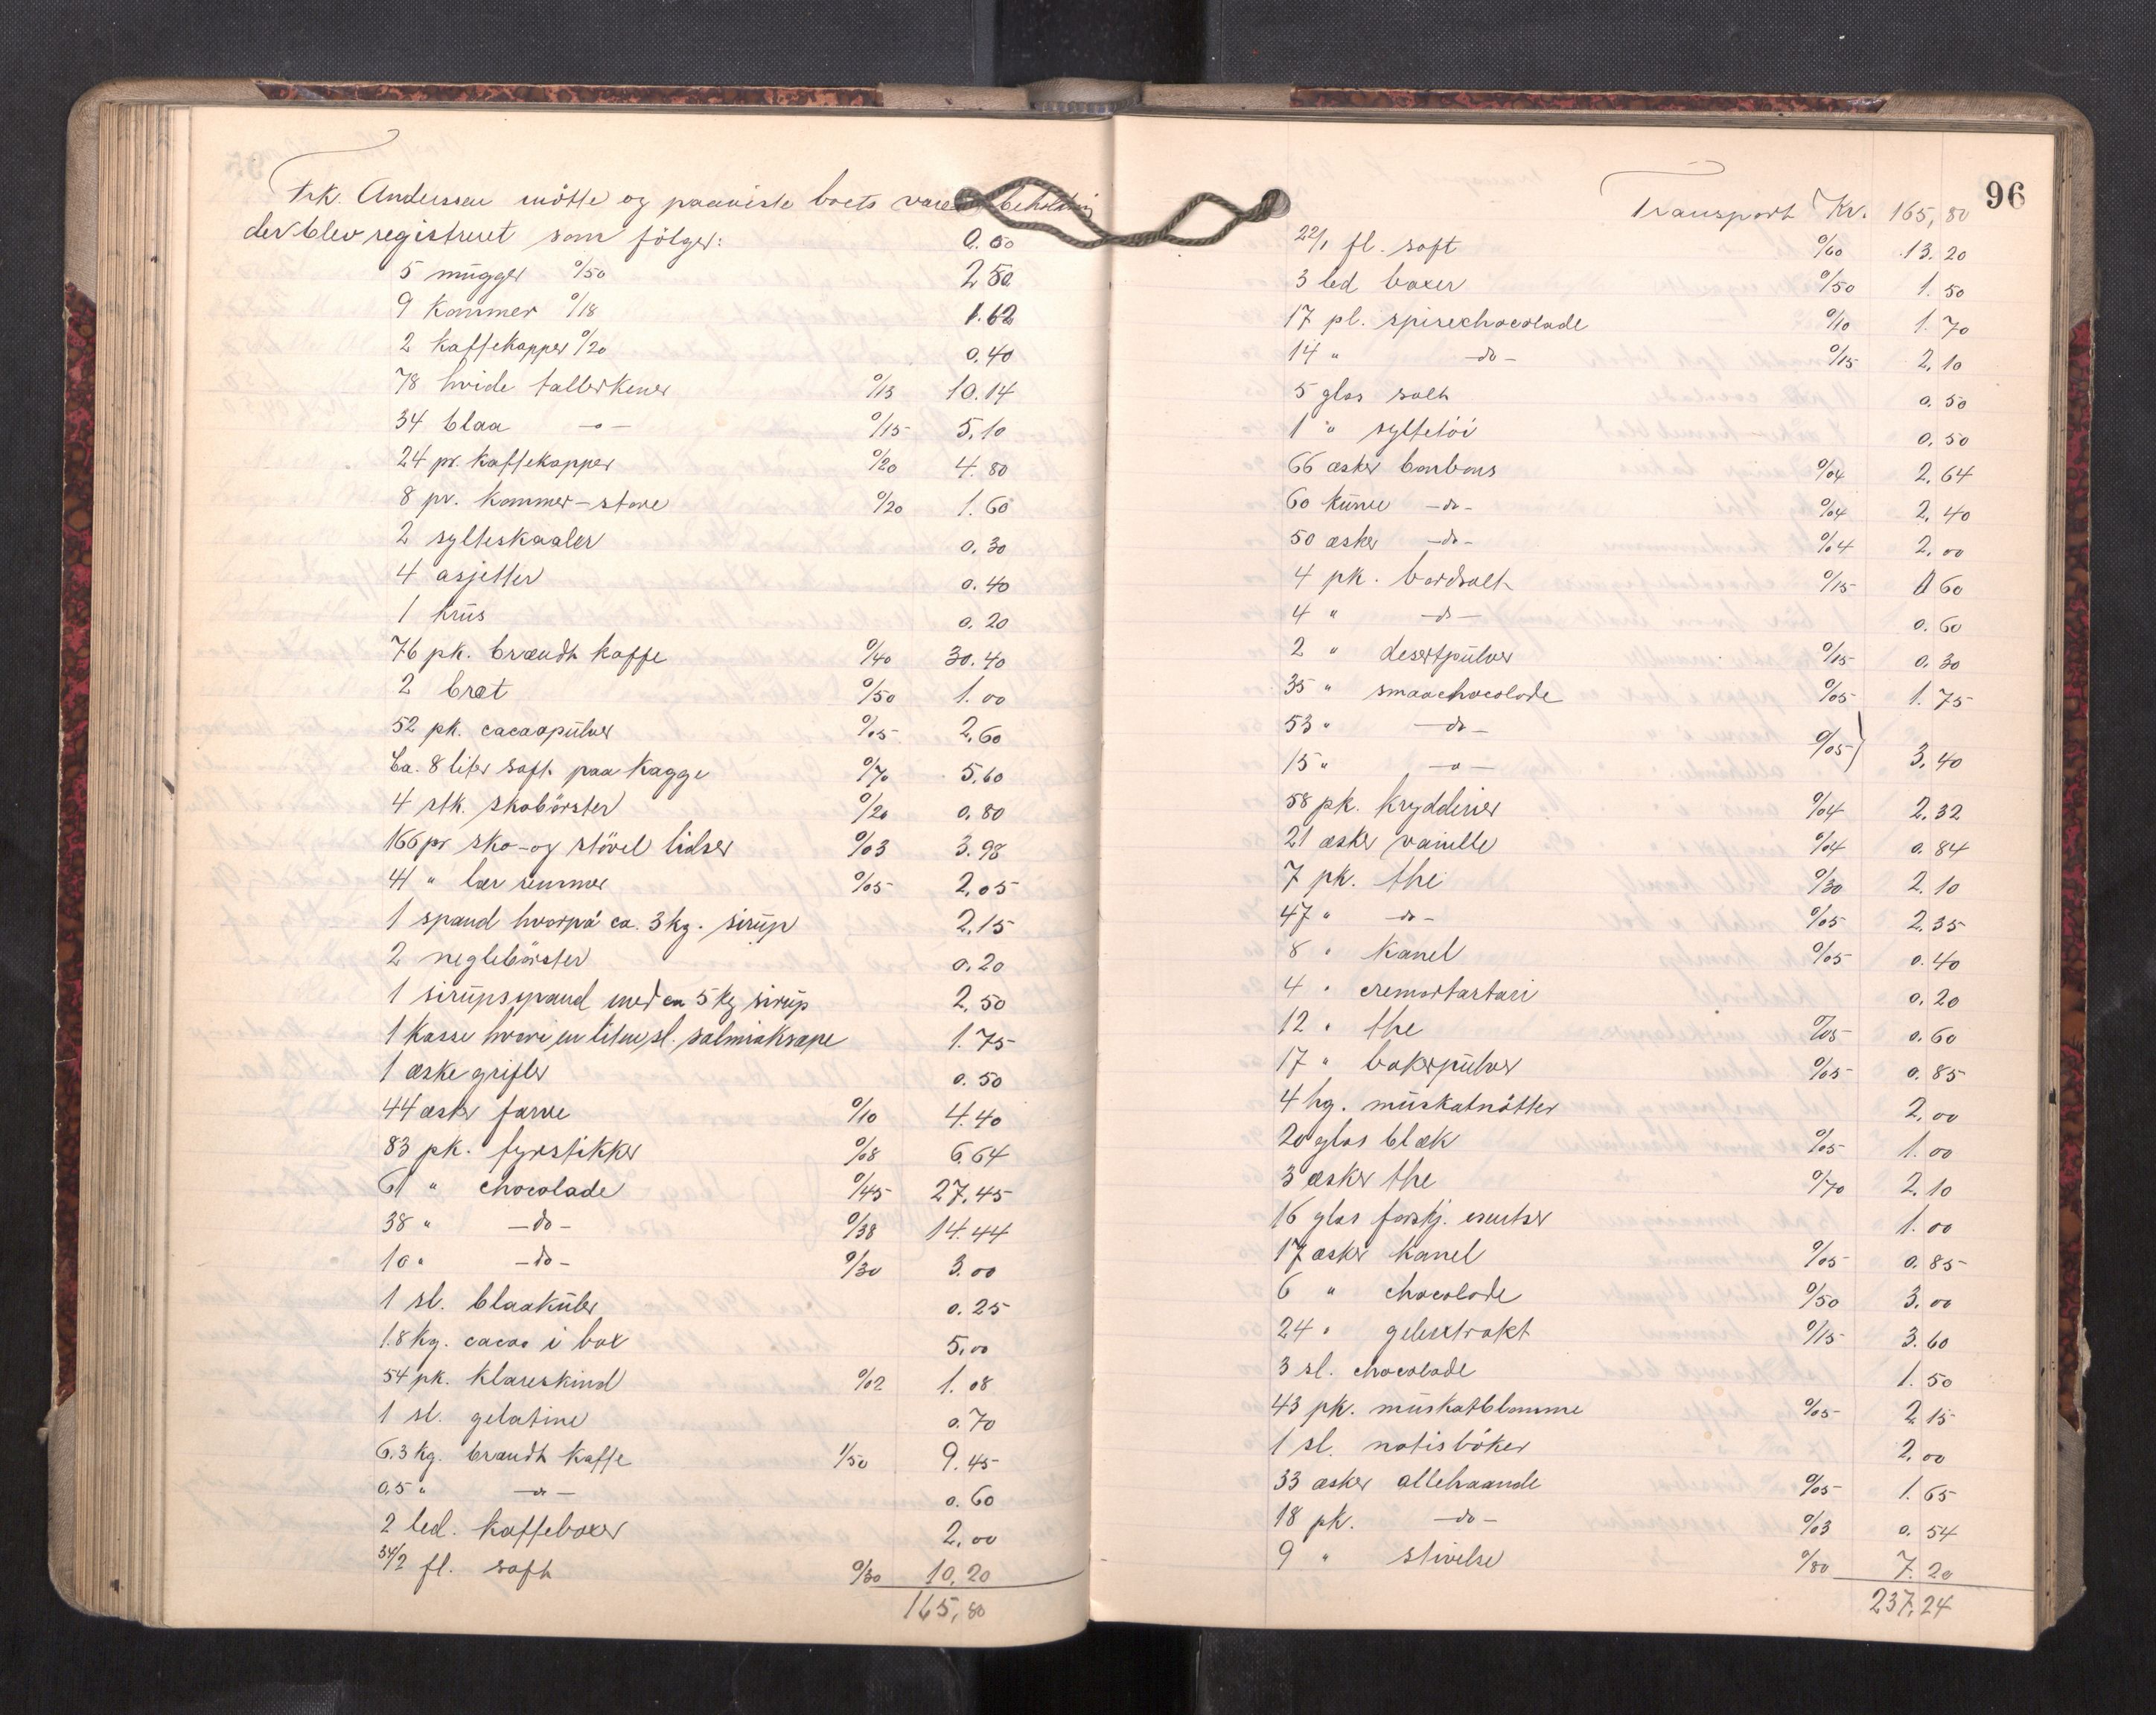 Frk. Anderssen mötte og paaviste boets varebeholdning
der blev registreret som fölger: 0.00
5 mugger 0/50 2 50
9 Kommer 0/18 1.62
2 kaffekopper 0/20 0.40
78 hvide tallerkener 0/13 10.14
34 blaa -"- 0/15 5.10
24 pr. kaffekopper 0/20 4.80
8 pr. kommer - store 0/20 1.60
2 sylteskaaler 0.30
4 asjetter 0.40
1 krus 0.20
76 pk. brændt kaffe 0/40 30.40
2 bræt 0/50 1.00
52 pk. cacaopulver 0/05 2.60
Ca. 8 liter saft paa Kagge 0/70 5.60
4 stk. skobörster 0/20 0.80
166 pr sko- og stövel lidser 0/03 3.98
41 " lær remmer 0/05 2.05
1 spand hvorpå ca. 3 kg. sirup 2.15
2 neglebörster 0.20
1 sirupsspand med ca 5 kg sirup 2.50
1 Kasse hvori en liten sl. salmiaksæpe 1.75
1 æske grifler 0.50
44 æsker farve 0/10 4.40
83 pk. fyrstikker 0/08 6.64
61 " chocolade 0/45 27.45
38 " -do- 0/38 14.44
10 " -do- 0/30 3.00
1 sl. blaakuler 0.25
1.8 kg. cacao i box 5.00
54 pk. klareskind 0/02 1.08
1 sl. gelatine 0.70
6.3 kg. brændt kaffe 1/50 9.45
0.5 " -do- 0.60
2 led. kaffeboxer 2.00
34/2 fl. saft 0/30 10.20
165,80
96
Transport Kr. 165,80
22/1 fl. saft 0/60 13.20
3 led boxer 0/50 1.50
17 pl. spisechocolade 0/10 1.70
14 " -do- 0/15 2.10
5 glas salt 0.50
1 " syltetöi 0.50
66 æsker bonbons 0/04 2.64
60 kurve -do- 0/04 2.40
50 æsker -do- 0/04 2.00
4 pk. bordsalt 0/15 0 60
4 " -do- 0.60
2 " desertpulver 0/15 0.30
35 " smaachocolade 0/05 1.75
53 " -do-
15 " -"- 0/05} 3.40
58 pk. krydderier 0/04 2.32
21 æsker vanille 0/04 0.84
7 pk. the 0/30 2.10
47 " -do- 0/05 2.35
8 " Kanel 0/05 0.40
4 " cremortartari 0.20
12 " the 0/05 0.60
17 " bakerpulver 0/05 0.85
4 hg. muskatnötter 2.00
20 glas blæk 0/05 1.00
3 æsker the 0/70 2.10
16 glas forskj. esentser 1.00
17 æsker kanel 0/05 0.85
6 " chocolade 0/50 3.00
24 " geleextrakt 0/15 3.60
3 sl. chocolade 1.50
43 pk. muskatblomme 0/05 2 15
1 sl. notisböker 2.00
33 æsker allehaande 0/05 1.65
18 pk. -do- 0/03 0.54
9 " stivelse 0/80 7.20
237,24